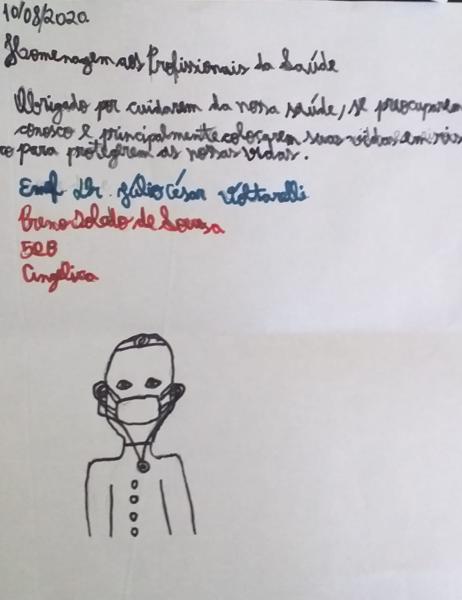 10/08/2020
Homenagem aos Profissionais da Saúde
Obrigado por cuidarem da nossa saúde, se preocuparem
conosco e principalmente colocarem suas vidas em ris
co para protegerem as nossas vidas.
Emef Dr. Júlio César Voltarelli
Breno Solato de Souza
5ºB
Angélica